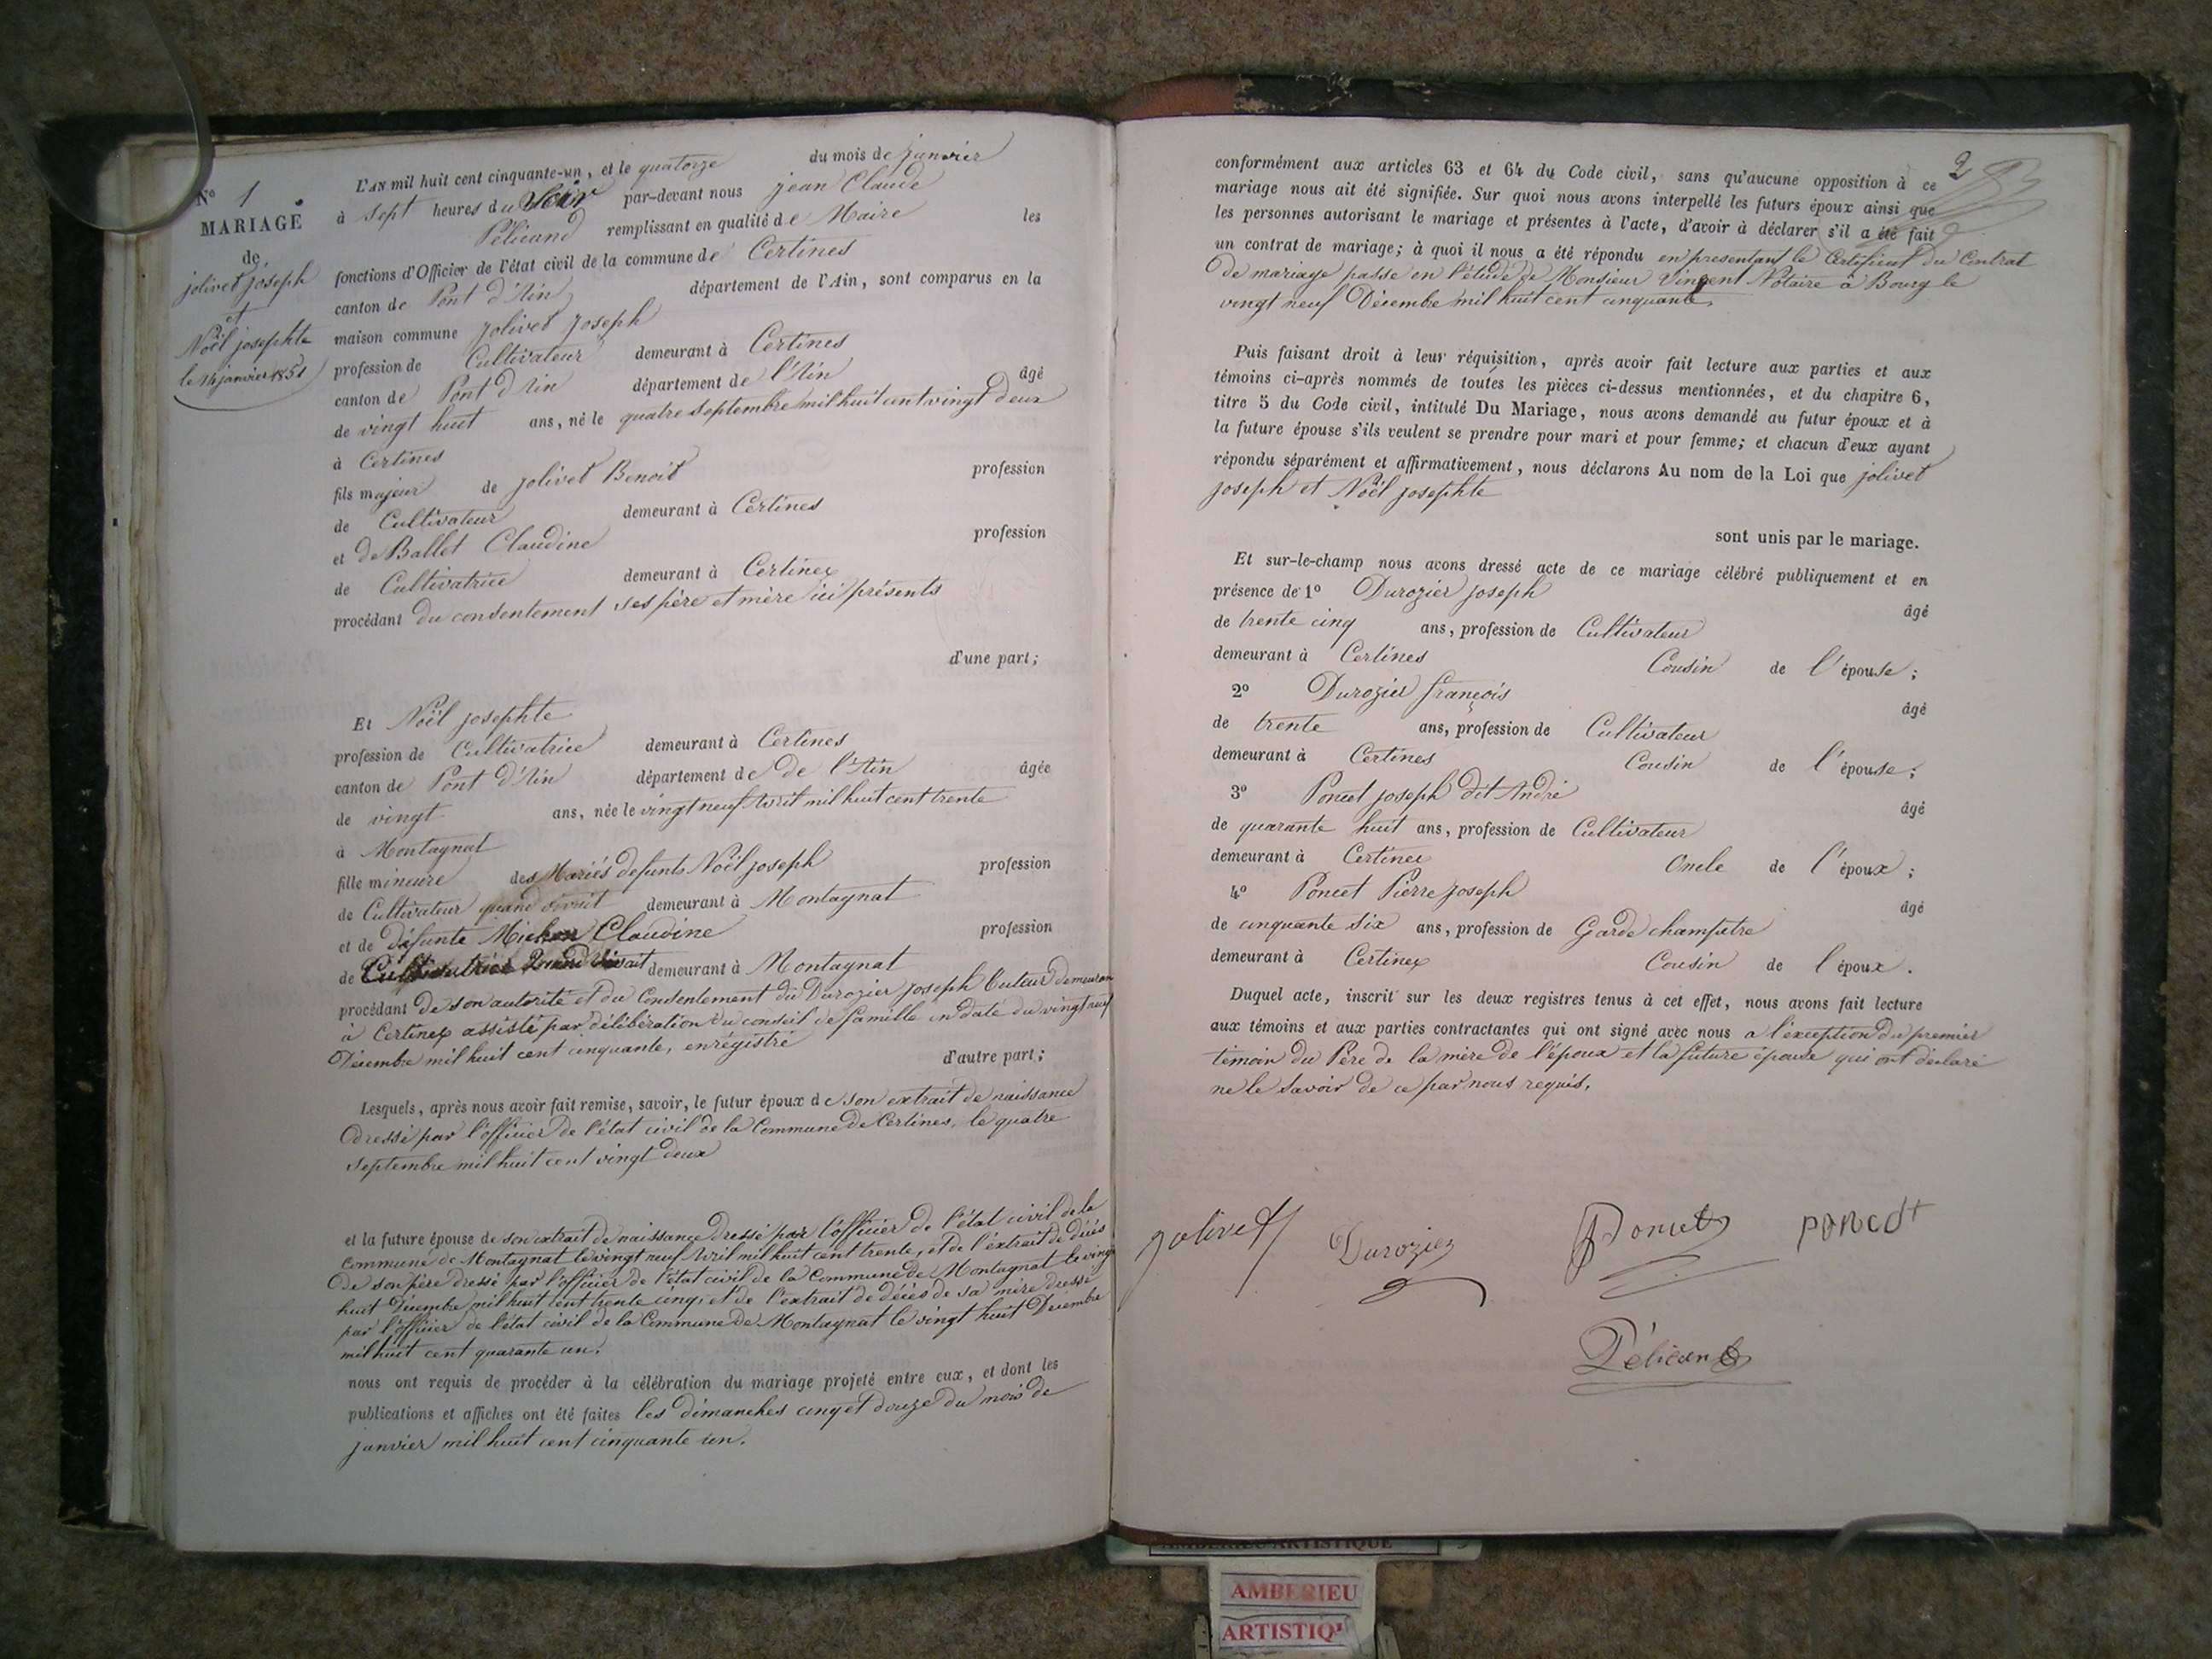 N° 1
MARIAGE
de
jolivet joseph
et
Noël josephte
le 14 janvier 1851
L'AN mil huit cent cinquante-un, et le quatorze du mois de janvier
à sept heures du Soir par-devant nous jean Claude
Pélicand remplissant en qualité de Maire les
fonctions d'Officier de l'état civil de la commune de Certines
canton de Pont d'Ain département de l'Ain, sont comparus en la
maison commune jolivet joseph
profession de Cultivateur demeurant à Certines
canton de Pont d'Ain département de l'Ain âgé
de vingt huit ans, né le quatre Septembre mil huit cent vingt deux
à Certines
fils majeur de jolivet Benoit profession
de Cultivateur demeurant à Certines
et de Ballet Claudine profession
de Cultivatrice demeurant à Certines
procédant du consentement ses père et mère ici présents
d'une part;
Et Noël josephte
profession de Cultivatrice demeurant à Certines
canton de Pont d'Ain département de de l'Ain âgée
de vingt ans, née le vingt neuf Avril mil huit cent trente
à Montagnat
fille mineure des Mariés defunts Noël joseph profession
de Cultivateur quand vivait demeurant à Montagnat
et de défunte Michon Claudine profession
de Cultivatrice Quand vivait demeurant à Montagnat
procédant de son autorité et du Consentement du Durozier joseph tuteur demeurant
à Certines assisté par délibération du conseil de famille en date du vingt neuf
Décembre mil huit cent cinquante, enregistré
d'autre part;
Lesquels, après nous avoir fait remise, savoir, le futur époux de son extrait de naissance
dressé par l'officier de l'état civil de la Commune de Certines, le quatre
Septembre mil huit cent vingt deux
et la future épouse de son extrait de naissance dressé par l'officier de l'état civil de la
commune de Montagnat le vingt neuf Avril mil huit cent trente, et de l'extrait de décès
de son père dressé par l'officier de l'état civil de la Commune de Montagnat le vingt
huit Décembre mil huit cent trente cinq, et de l'extrait de décès de sa mère dressé
par l'officier de l'état civil de la Commune de Montagnat le vingt huit Décembre
mil huit cent quarante un.
nous ont requis de procéder à la célébration du mariage projeté entre eux, et dont les
publications et affiches ont été faites les dimanches cinq et douze du mois de
janvier mil huit cent cinquante un.
2
conformément aux articles 63 et 64 du Code civil, sans qu'aucune opposition à ce
mariage nous ait été signifiée. Sur quoi nous avons interpellé les futurs époux ainsi que
les personnes autorisant le mariage et présentes à l'acte, d'avoir à déclarer s'il a été fait
un contrat de mariage; à quoi il nous a été répondu en presentant le Certificat du Contrat
de mariage passé en l'étude de Monsieur Vincent Notaire à Bourg le
vingt neuf Décembre mil huit cent cinquante.
Puis faisant droit à leur réquisition, après avoir fait lecture aux parties et aux
témoins ci-après nommés de toutes les pièces ci-dessus mentionnées, et du chapitre 6,
titre 5 du Code civil, intitulé Du Mariage, nous avons demandé au futur époux et à
la future épouse s'ils veulent se prendre pour mari et pour femme; et chacun d'eux ayant
répondu séparément et affirmativement, nous déclarons Au nom de la Loi que jolivet
joseph et Noël josephte
sont unis par le mariage.
Et sur-le-champ nous avons dressé acte de ce mariage célébré publiquement et en
présence de 1° Durozier joseph âgé
de trente cinq ans, profession de Cultivateur
demeurant à Certines Cousin de l'épouse;
2° Durozier françois âgé
de trente ans, profession de Cultivateur
demeurant à Certines Cousin de l'épouse;
3° Poncet joseph dit André âgé
de quarante huit ans, profession de Cultivateur
demeurant à Certines Oncle de l'époux;
4° Poncet Pierre joseph âgé
de cinquante six ans, profession de Garde champêtre
demeurant à Certines Cousin de l'époux.
Duquel acte, inscrit sur les deux registres tenus à cet effet, nous avons fait lecture
aux témoins et aux parties contractantes qui ont signé avec nous a l'exception du premier
témoin du Père de la mère de l'époux et la future épouse qui ont déclaré
ne le Savoir de ce par nous requis.
jolivet Durozier Poncet PONCet
Pélicand
AMBERIEU ARTISTIQUE
AMBERIEU
ARTISTIQU